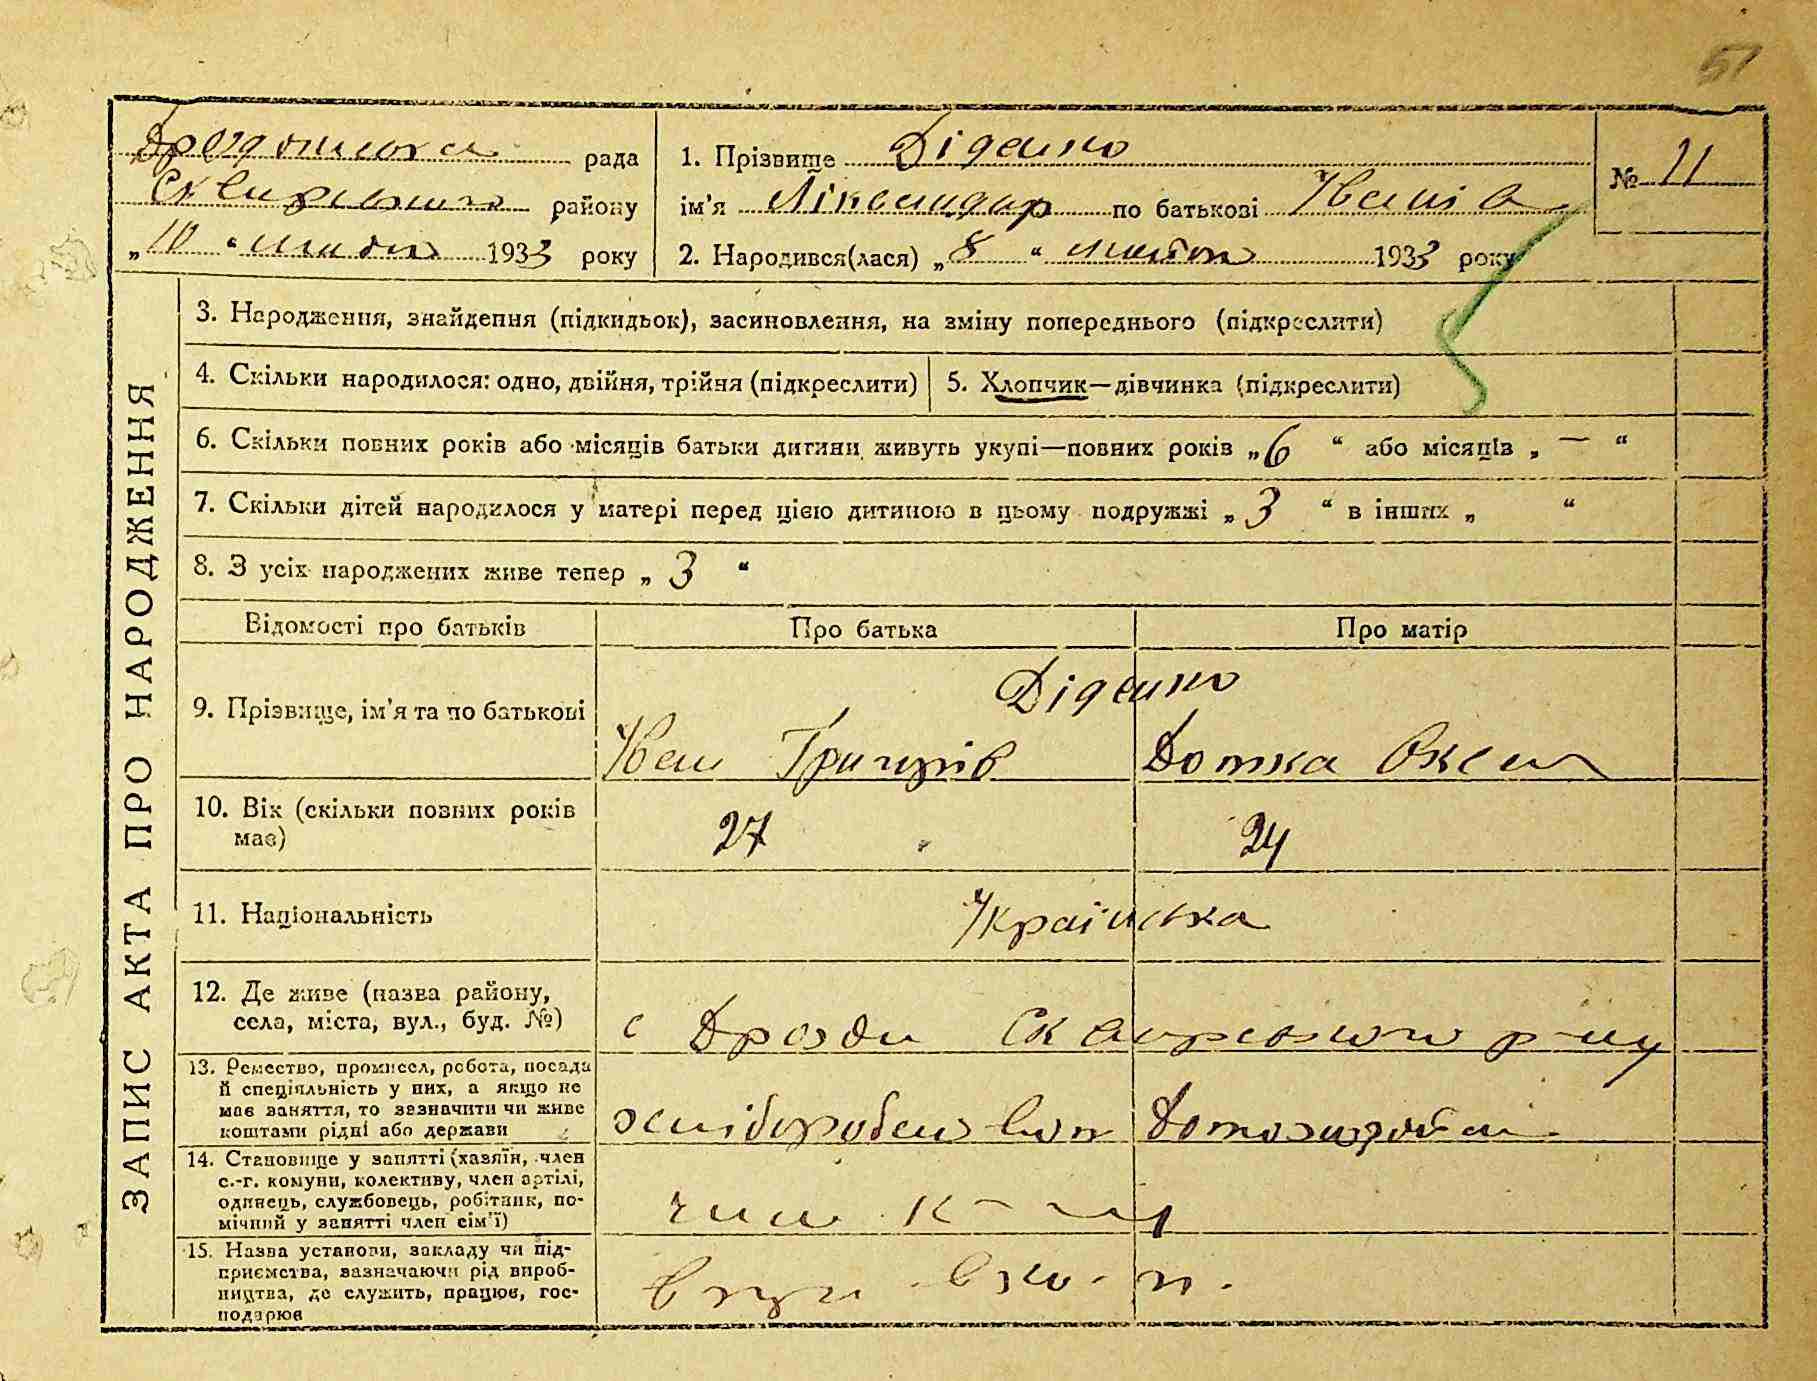 51
рада
Сквирського району
„10“ 1933 року
1. Прізвище Діденко
ім'я по батькові Іванів
2. Народився(лася) „8“ 1933 року
№ 11
ЗАПИС АКТА ПРО НАРОДЖЕННЯ
3. Народження, знайдення (підкидьок), засиновлення, на зміну попереднього (підкреслити)
4. Скільки народилося: одно, двійня, трійня (підкреслити)
5. Хлопчик—дівчинка (підкреслити)
6. Скільки повних років або місяців батьки дитини живуть укупі—повних років „6“ або місяців „—“
7. Скільки дітей народилося у матері перед цією дитиною в цьому подружжі „3“ в інших „ “
8. З усіх народжених живе тепер „3“
Відомості про батьків
Про батька
Про матір
9. Прізвище, ім'я та по батькові
Діденко
Іван Григорів
Домка
10. Вік (скільки повних років
має)
27
24
11. Національність
Українська
12. Де живе (назва району,
села, міста, вул., буд. №)
с Дрозди Сквирського р-ну
13. Ремество, промисел, робота, посада
й спеціяльність у них, а якщо не
має заняття, то зазначити чи живе
коштами рідні або держави
14. Становище у занятті (хазяїн, член
с.-г. комуни, колективу, член артілі,
одинець, службовець, робітник, по-
мічний у занятті член сім'ї)
член к-
15. Назва установи, закладу чи під-
приємства, зазначаючи рід вироб-
ництва, де служить, працює, гос-
подарює